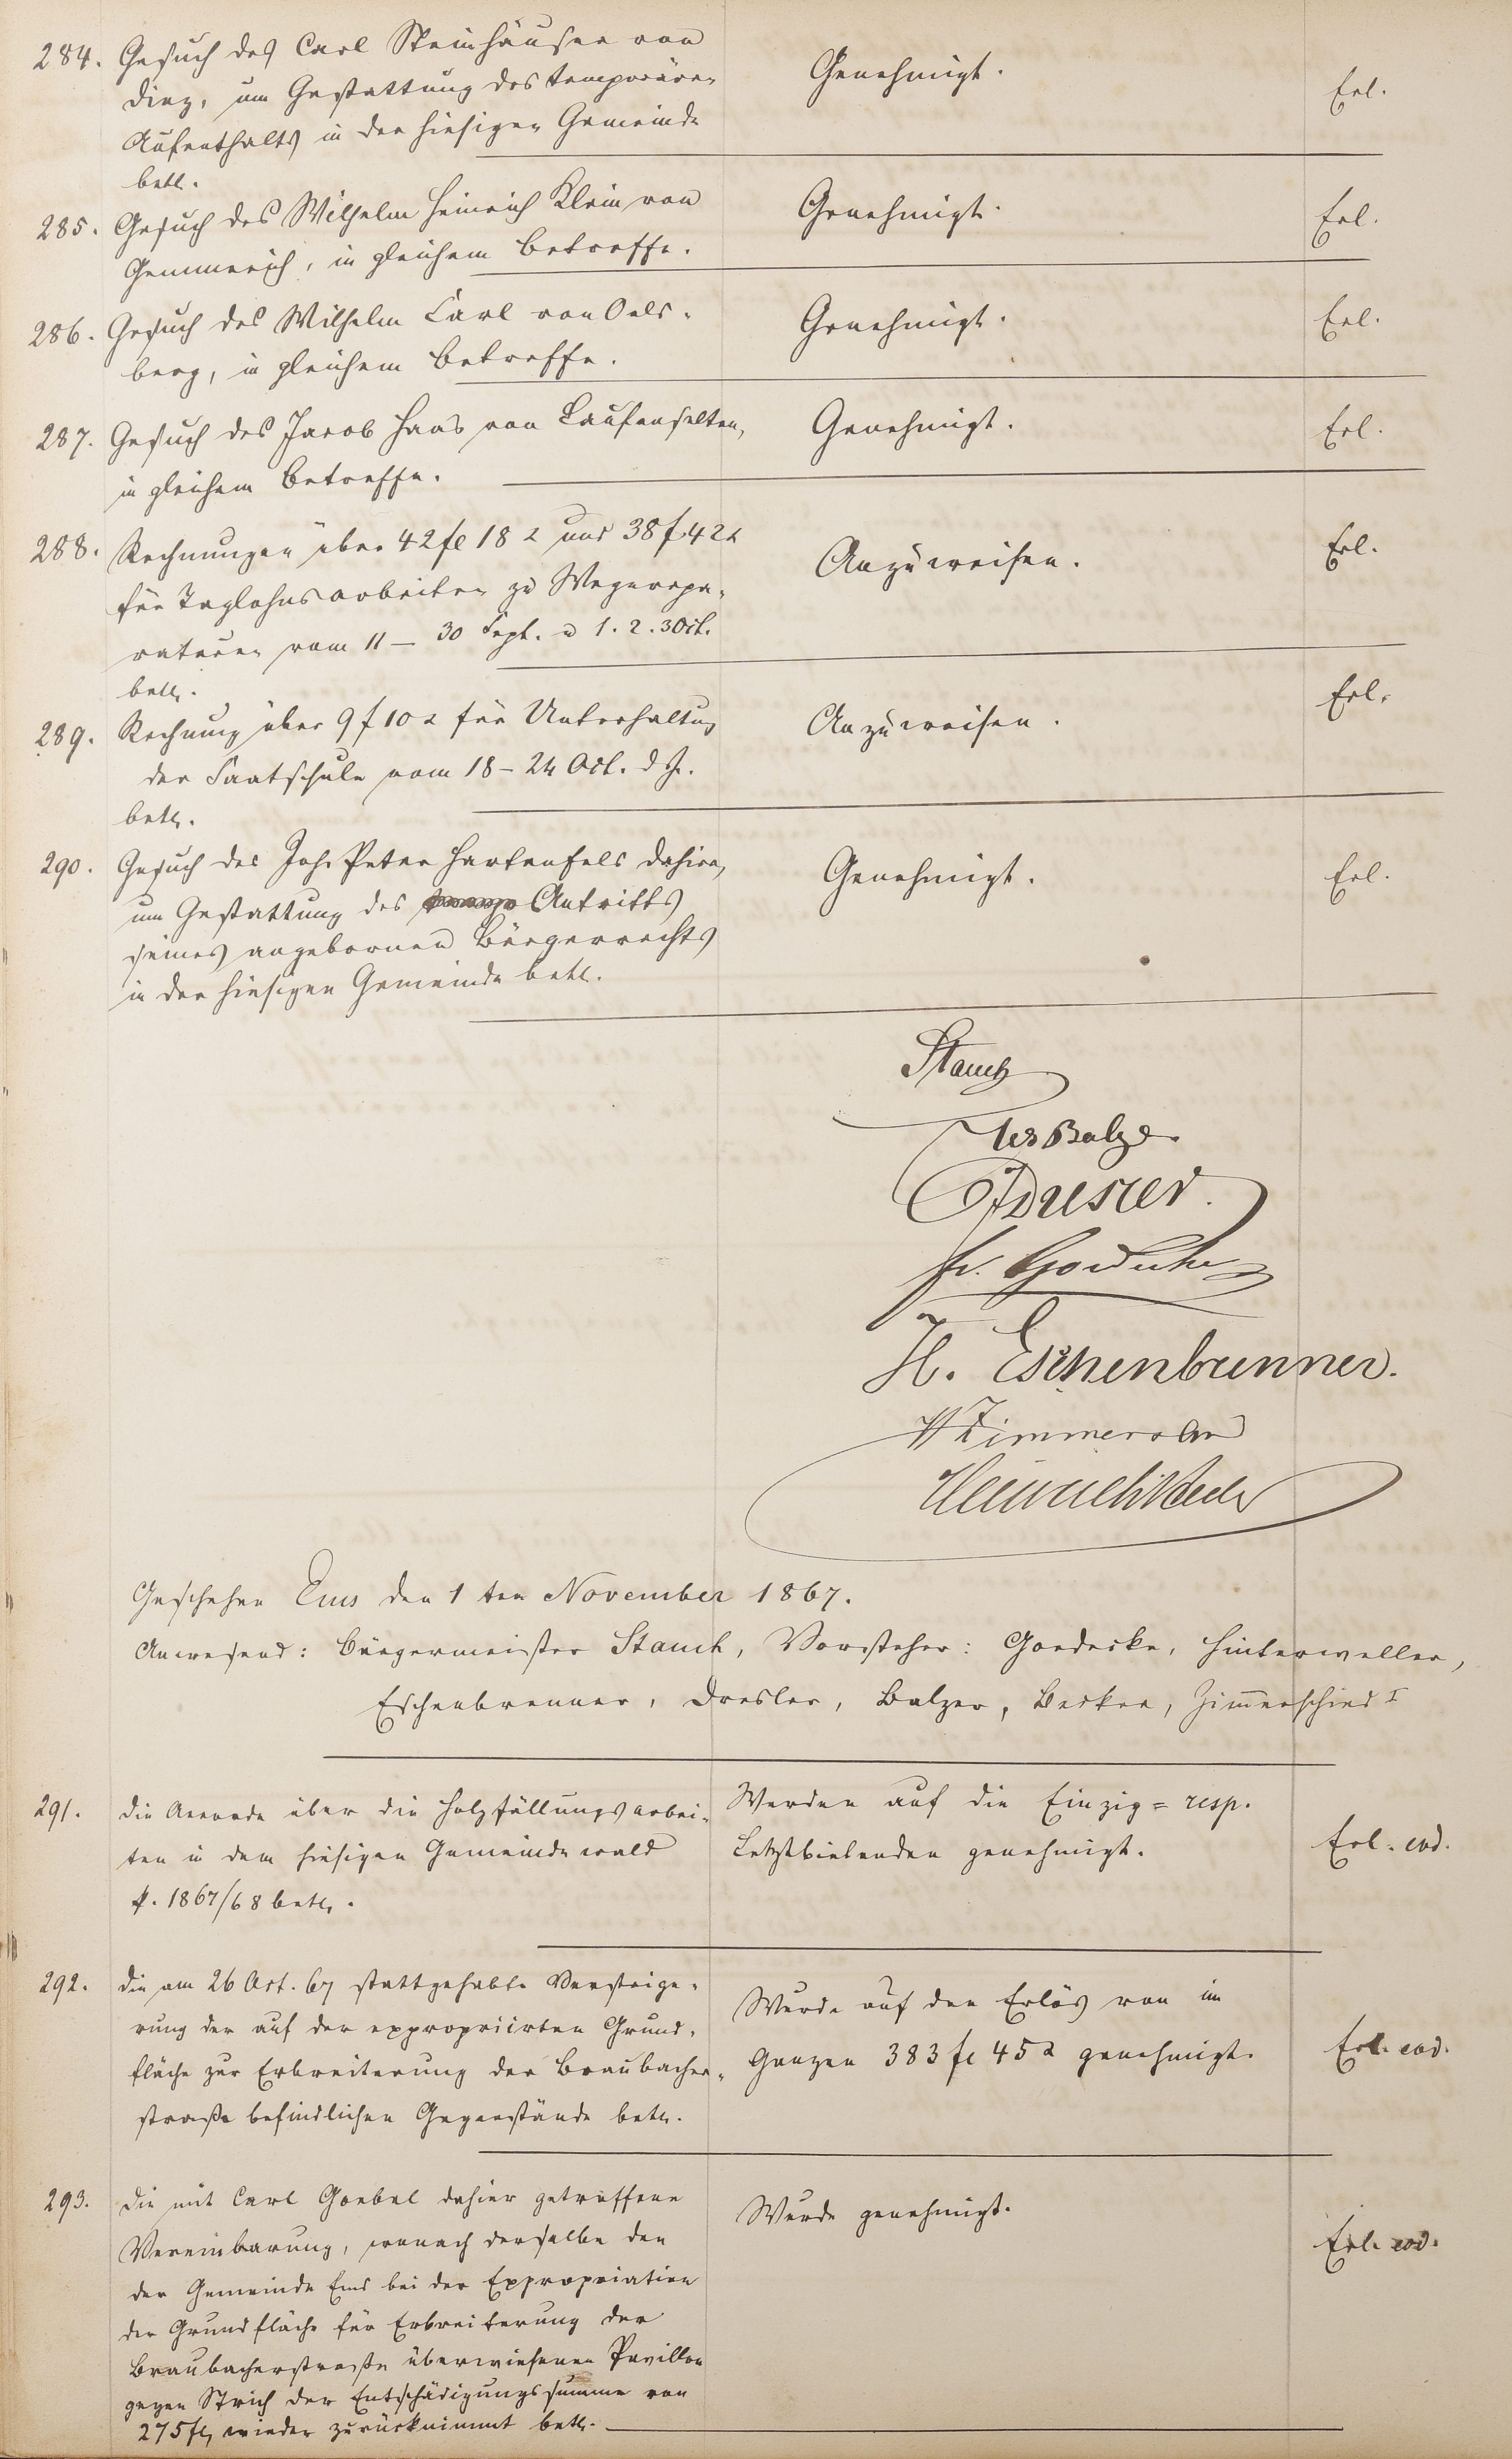 284. Gesuch des Carl Steinhäuser von
Diez, um Gestattung des temporären
Aufenthalts in der hiesigen Gemeinde
betr.
Genehmigt.
Erl.
285. Gesuch des Wilhelm Heinrich Klein von
Gemmerich, in gleichem Betreffe.
Genehmigt.
Erl.
286. Gesuch des Wilhelm Carl von Oels-
berg, in gleichem Betreffe.
Genehmigt.
Erl.
287. Gesuch des Jacob Haas von Laufenselten,
in gleichem Betreffe.
Genehmigt.
Erl.
288. Rechnungen über 42 fl 18 x und 38 f. 42 x
für Taglohnsarbeiten zu Wegerepa-
raturen vom 11 – 30 Sept. u 1. 2. 3 Oct.
betr.
Anzuweisen.
Erl.
289. Rechnung über 9 f 10 x für Unterhaltung
der Saatschule vom 18 – 24 Oct. d J.
betr.
Anzuweisen.
Erl.
290. Gesuch des Joh. Peter Hartenfels dahier,
um Gestattung des Antritts
seines angebornen Bürgerrechts
in der hiesigen Gemeinde betr.
Genehmigt.
Erl.
Stauch
Balzer
Dresler.
Fr. Goedecke
H. Eschenbrenner.
Heinrich Becker
Geschehen Ems den 1ten November 1867.
Anwesend: Bürgermeister Stauch, Vorsteher: Goedecke, Hinterweller,
Eschenbrenner, Dresler, Balzer, Becker, Zimmerschied I
291. Die Accorde über die Holzfällungsarbei-
ten in dem hiesigen Gemeindewald
p. 1867/68 betr.
Werden auf die Einzig = resp.
Letztbietenden genehmigt.
Erl. eod.
292. Die am 26 Oct. 67 stattgehabte Versteige-
rung der auf der expropriirten Grund-
fläche zur Erbreiterung der Braubacher-
straße befindlichen Gegenstände betr.
Wurde auf den Erlös von im
Ganzen 383 fl 45 x genehmigt.
Erl. eod.
293. Die mit Carl Goebel dahier getroffene
Vereinbarung, wonach derselbe den
der Gemeinde Ems bei der Expropriation
der Grundfläche für Erbreiterung der
Braubacherstraße überwiesenen Pavillon
gegen Strich der Entschädigungssumme von
275 fl, wieder zurücknimmt betr.
Wurde genehmigt.
Erl. eod.